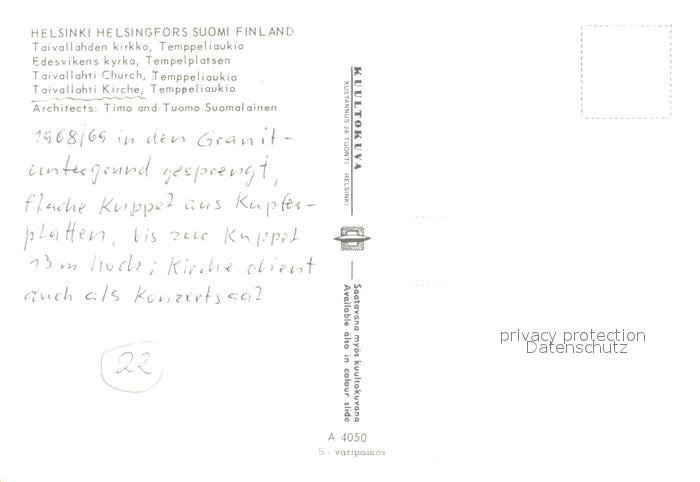 HELSINKI HELSINGFORS SUOMI FINLAND
Taivallahden kirkko, Temppeliaukio
Edesvikens kyrka, Tempelplatsen
Taivallahti Church, Temppeliaukio
Taivallahti Kirche, Temppeliaukio
Architects: Timo and Tuomo Suomalainen
1968/69 in den Granit-
untergrund gesprengt,
flache Kuppel aus Kupfer-
platten, bis zur Kuppel
13 m hoch; Kirche dient
auch als Konzertsaal
22
KUULTOKUVA
KUSTANNUS JA TUONTI HELSINKI
Saatavana myös kuultokuvana
Available also in colour slide
A 4050
S - varipainos
privacy protection
Datenschutz